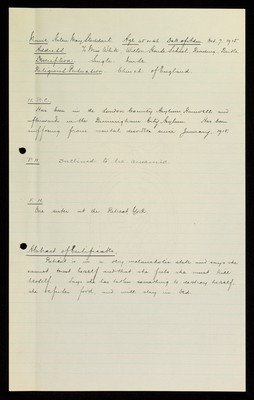 Name Helen May Stoddart. Age 25 or 26 Date of
Address To Miss White, Water School, Reading, Berks
Occupation Single Nurse
Religious Persuasion Church of England.
H.P.I.
Has been in the London County Asylum Hanwell and
afterwards in the Birmingham City Asylum. Has been
suffering from mental disorder since January, 1915
F.H.
P.H.
Was under at the Retreat York.
Abstract of Certificates.
Patient is in a very melancholic state and says she
cannot trust herself and that she feels she must kill
herself. Says she has taken something to destroy herself.
She refuses food, and will stay in bed.